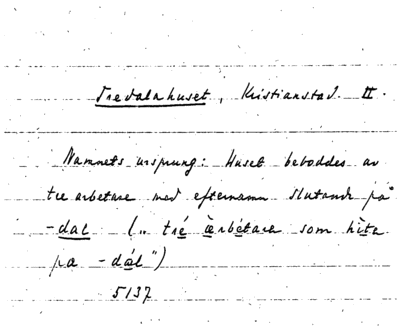 Tredalahuset, Kristianstad. II.
Namnets ursprung: Huset beboddes av
tre arbetare med efternamn slutande på
-dal („ tré àrbétara som hìta
pa -dál")
5137